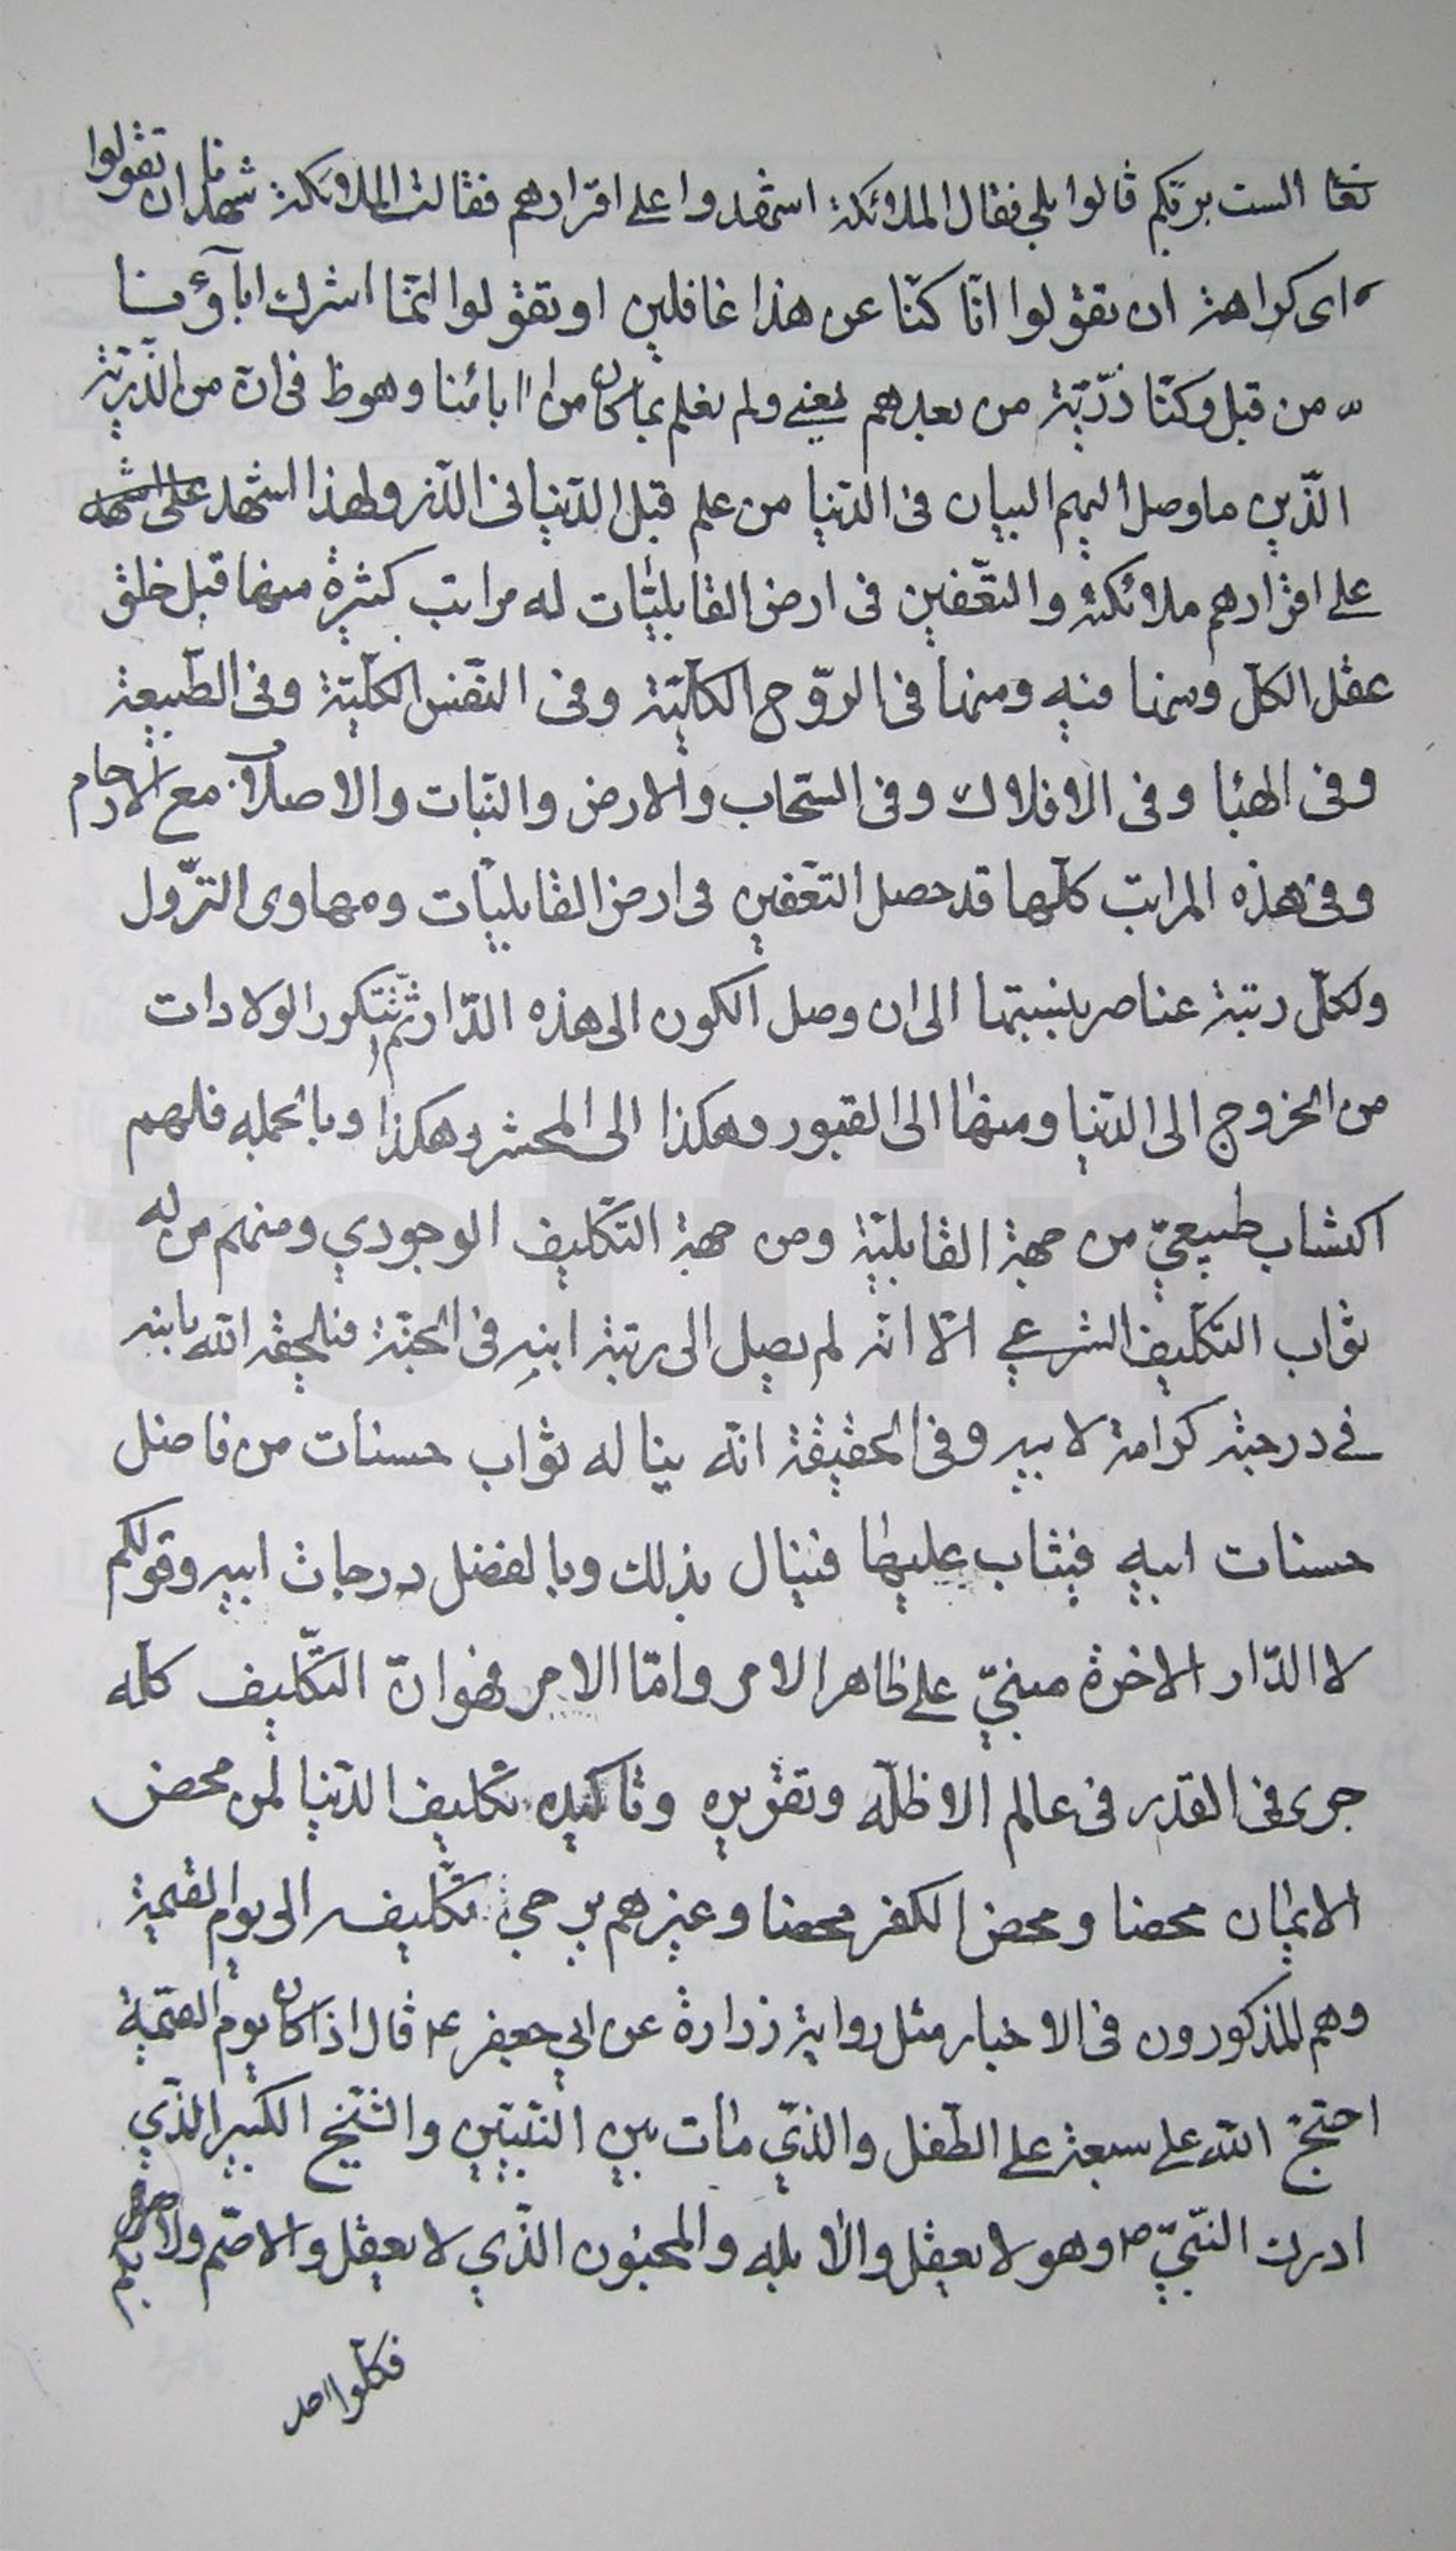 تعا الست بربّكم قالوا بلى فقال الملائكة اشهدوا على اقرارهم فقالت الملائكة شهدنا ان تقولوا
اى كراهة ان تقولوا انّا كنّا عن هذا غافلين او تقولوا انّما اشرك اباؤنا
من قبل وكنّا ذرّيّة من بعدهم يعنى ولم نعلم بما كان من اابائنا وهو ظ فى انّ من الذّرّيّة
الّذين ما وصل اليهم البيان فى الدّنيا من علم قبل الدّنيا فى الذّر ولهذا اشهد
على اقرارهم ملائكته والتعّفين فى ارض القابليّات له مراتب كثيرة منها قبل خلق
عقل الكلّ ومنها فيه ومنها فى الرّوح الكلّيّة وفى النّفس الكلّيّة وفى الطّبيعة
وفى الهبا وفى الافلاك وفى السّحاب والارض والنّبات والاصلاب مع الارحام
وفى هذه المراتب كلّها قد حصل التعّفين فى ارض القابليّات ومهاوى النّزول
ولكلّ رتبة عناصر بنسبتها الى ان وصل الكون الى هذه الدّار ثمّ تتكرر الولادات
من الخروج الى الدّنيا ومنها الى القبور وهكذا الى المحشر وهكذا وبالجمله فلهم
اكتساب طبيعىّ من جهة القابليّة ومن جهة التّكليف الوجودي ومنهم من له
ثواب التكليف الشرعي الّا انّه لم يصل الى رتبة ابيه فى الجنّة فيلحقه الله بابيه
فى درجته كرامة لابيه وفى الحقيقة انّه يناله ثواب حسنات من فاضل
حسنات ابيه فيثاب عليها فينال بذلك وبالفضل درجات ابيه وقولكم
لا الدّار الاخرة مبنىّ على ظاهر الامر وامّا الامر فهو انّ التّكليف كلّه
جرى فى القدر فى عالم الاظلّه وتقريره وتاكيده تكليف الدّنيا لمن محض
الايمان محضا ومحض الكفر محضا وغيرهم يرجى تكليفه الى يوم القيمة
وهم المذكورون فى الاخبار مثل رواية زرارة عن ابي جعفر ع قال اذا كان يوم القيمة
احتجّ الله على سبعة على الطّفل والذّي مات بين النّبيّين والشّيخ الكبير الذّي
ادرك النّبيّ ص وهو لا يعقل والابله والمجنون الذّي لا يعقل والاصّم والابكم
فكلّ واحد